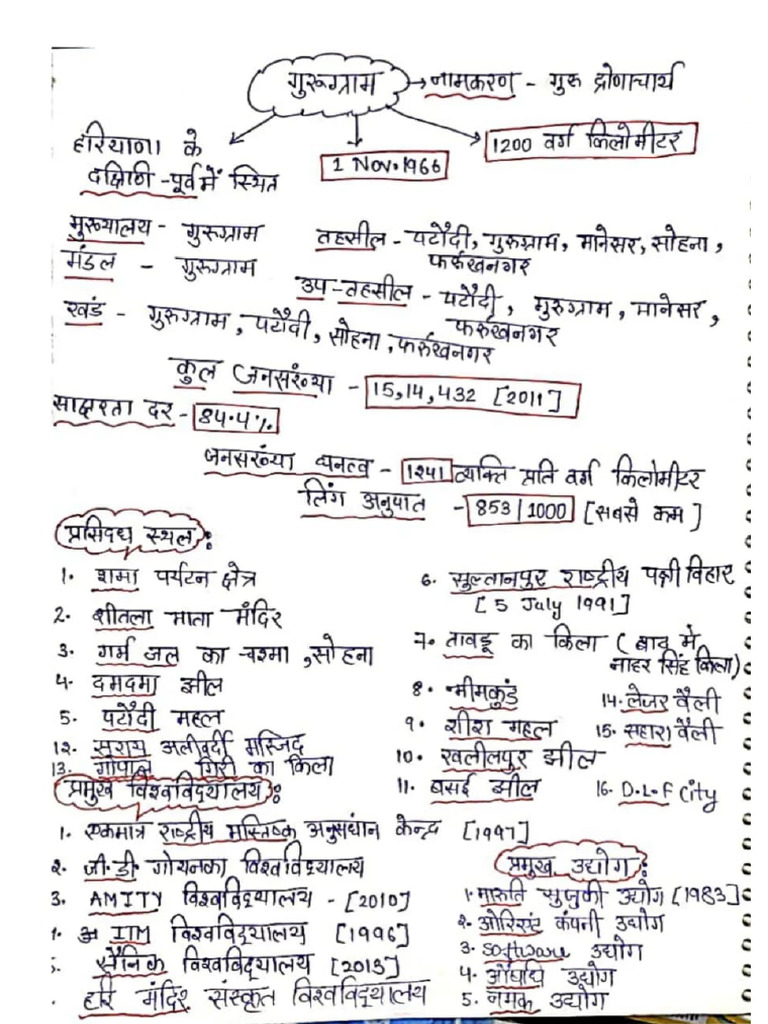 गुरुग्राम → नामकरण - गुरु द्रोणाचार्य
हरियाणा के
दक्षिणी -पूर्व में स्थित
1 Nov. 1966
1200 वर्ग किलोमीटर
मुख्यालय - गुरुग्राम
मंडल - गुरुग्राम
खंड - गुरुग्राम, पटौदी, सोहना, फर्रुखनगर
तहसील - पटौदी, गुरुग्राम, मानेसर, सोहना,
फर्रुखनगर
उप-तहसील - पटौदी, गुरुग्राम, मानेसर,
फर्रुखनगर
कुल जनसंख्या - 15,14,432 [2011]
साक्षरता दर - 84.4%
जनसंख्या घनत्व - 1241 व्यक्ति प्रति वर्ग किलोमीटर
लिंग अनुपात - 853/1000 [सबसे कम]
प्रसिद्ध स्थल:
1. शमा पर्यटन क्षेत्र
2. शीतला माता मंदिर
3. गर्म जल का चश्मा, सोहना
4. दमदमा झील
5. पटौदी महल
12. सराय अलीवर्दी मस्जिद
13. गोपाल गिरी का किला
6. सुल्तानपुर राष्ट्रीय पक्षी विहार
[5 July 1991]
7. तावडू का किला (बाद में
नाहर सिंह किला)
8. भीमकुंड
9. शीश महल
10. खलीलपुर झील
11. बसई झील
14. लेजर वैली
15. सहारा वैली
16. D.L.F City
प्रमुख विश्वविद्यालय:
1. एकमात्र राष्ट्रीय मस्तिष्क अनुसंधान केन्द्र [1997]
2. जी.डी. गोयनका विश्वविद्यालय
3. AMITY विश्वविद्यालय - [2010]
IITM विश्वविद्यालय [1996]
सैनिक विश्वविद्यालय [2013]
हरि मंदिर संस्कृत विश्वविद्यालय
प्रमुख उद्योग:
1. मारुति सुजुकी उद्योग [1983]
2. ओरिएंट कंपनी उद्योग
3. software उद्योग
4. औषधि उद्योग
5. नमक उद्योग